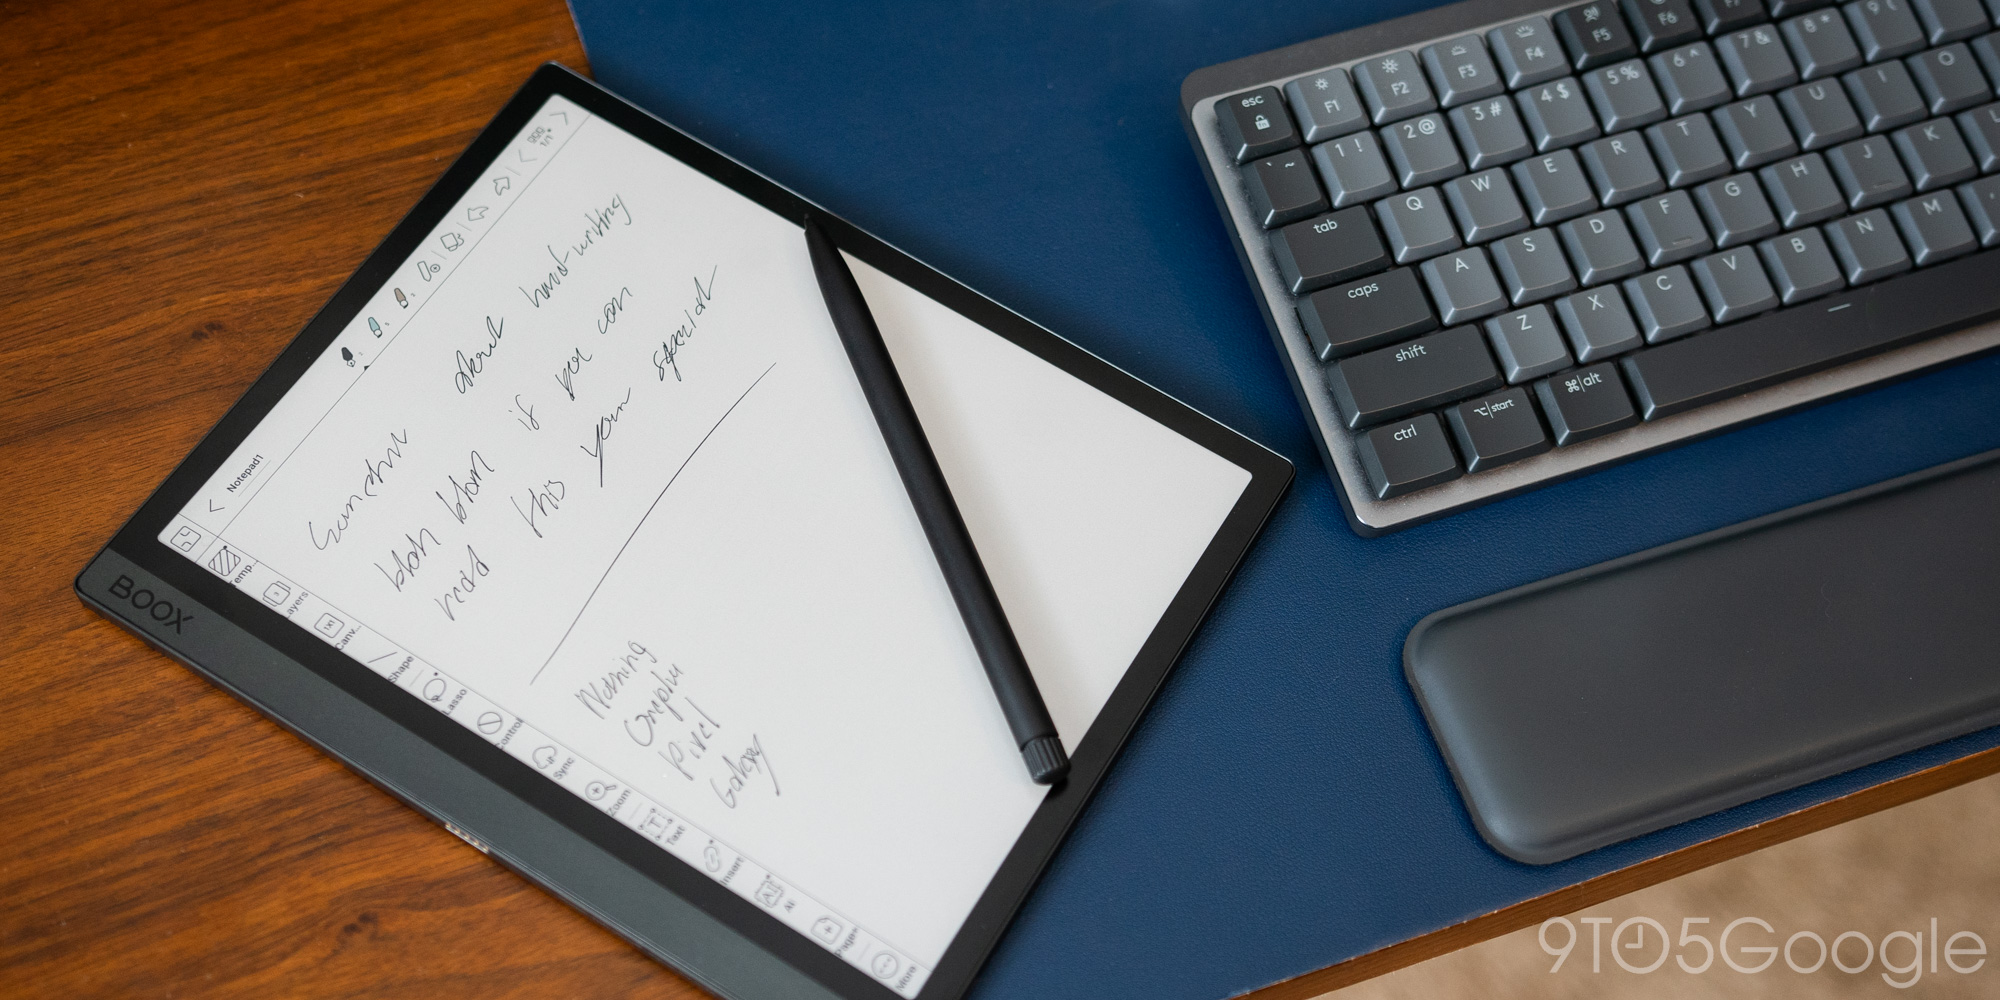 BOOX
Notepad1
1/1
about handwriting
blah blah if you can
read this your special
Nothing
Oneplus
Pixel
Galaxy
Temp...
Layers
Canv...
Shape
Lasso
Control
Sync
Zoom
Text
Insert
AI
Pages
More
esc F1 F2 F3 F4 F5 F6 F7
` ~ 1 ! 2 @ 3 # 4 $ 5 % 6 ^ 7 & 8 * 9 (
tab Q W E R T Y U I O
caps A S D F G H J K L
shift Z X C V B N M ,
ctrl ⌥|start ⌘|alt
9TO5Google